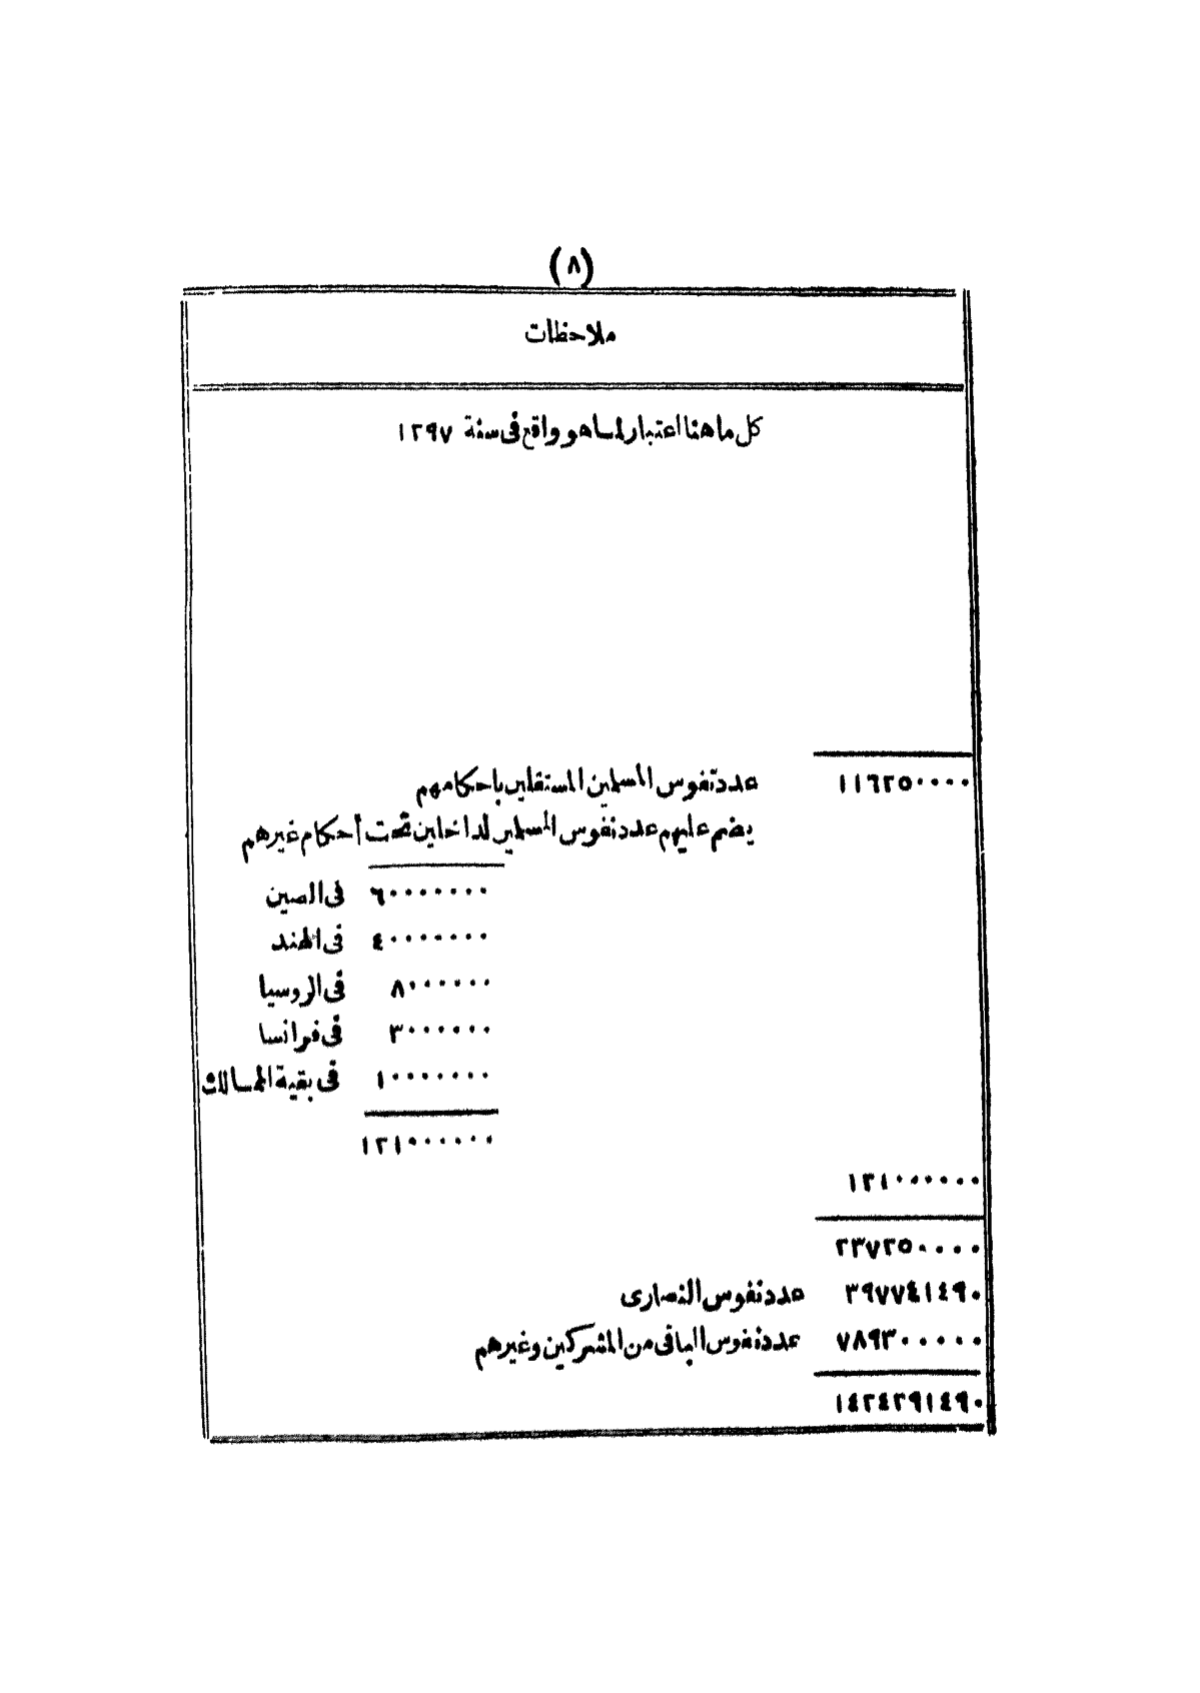 (٨)
ملاحظات
كل ما هنا اعتبار لما هو واقع فى سنة ١٢٩٧
١١٦٢٥٠٠٠٠ عدد نفوس المسلمين المستقلين باحكامهم
يضم عليهم عدد نفوس المسلمين الداخلين تحت أحكام غيرهم
٦٠٠٠٠٠٠٠ فى الصين
٤٠٠٠٠٠٠٠ فى الهند
٨٠٠٠٠٠٠ فى الروسيا
٣٠٠٠٠٠٠ فى فرانسا
١٠٠٠٠٠٠٠ فى بقية الممالك
١٢١٠٠٠٠٠٠
١٢١٠٠٠٠٠٠
٢٣٧٢٥٠٠٠٠
٣٩٧٧٤١٤٩٠ عدد نفوس النصارى
٧٨٩٣٠٠٠٠٠ عدد نفوس الباقى من المشركين وغيرهم
١٤٢٤٢٩١٤٩٠